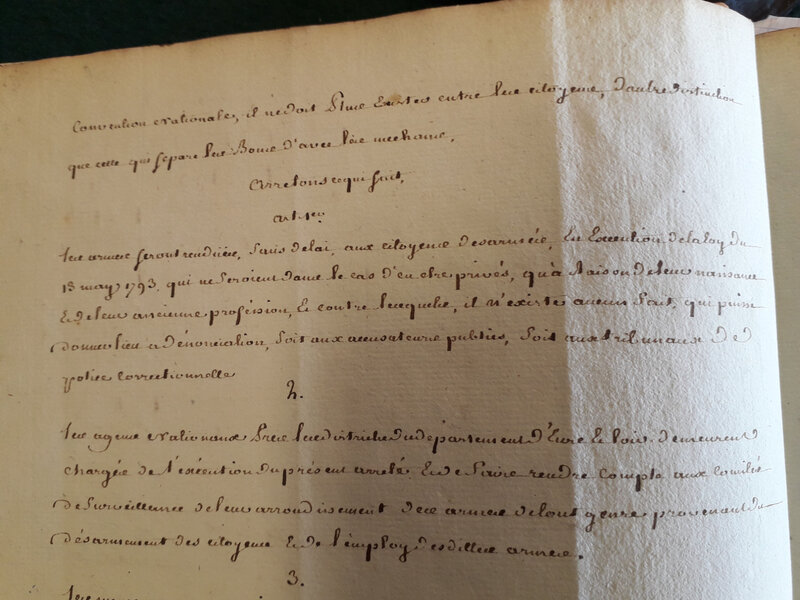 Convention nationale, il ne doit plus Exister entre les citoyens, d'autre distinction
que celle qui separe les Bons d'avec les mechants,
arretons ce qui suit,
art. 1er
Les armes seront rendües, sans delai, aux citoyens desarmés, En Execution de la loy du
13 may 1793, qui ne seroient dans le cas d'en etre privés, qu'à Raison de leur naissance
& de leur ancienne profession, & contre lesquels, il n'existe aucun fait, qui puisse
donner lieu a dénonciation, soit aux accusateurs publics, soit aux tribunaux de
police correctionnelle
2.
Les agens nationaux Près les districts du département d'Eure & loir, demeurent
chargés de l'exécution du présent arrêté & de faire rendre compte aux comités
de surveillance de leur arrondissement des armes de tout genre, provenant du
désarmement des citoyens & de l'employ desdittes armes.
3.